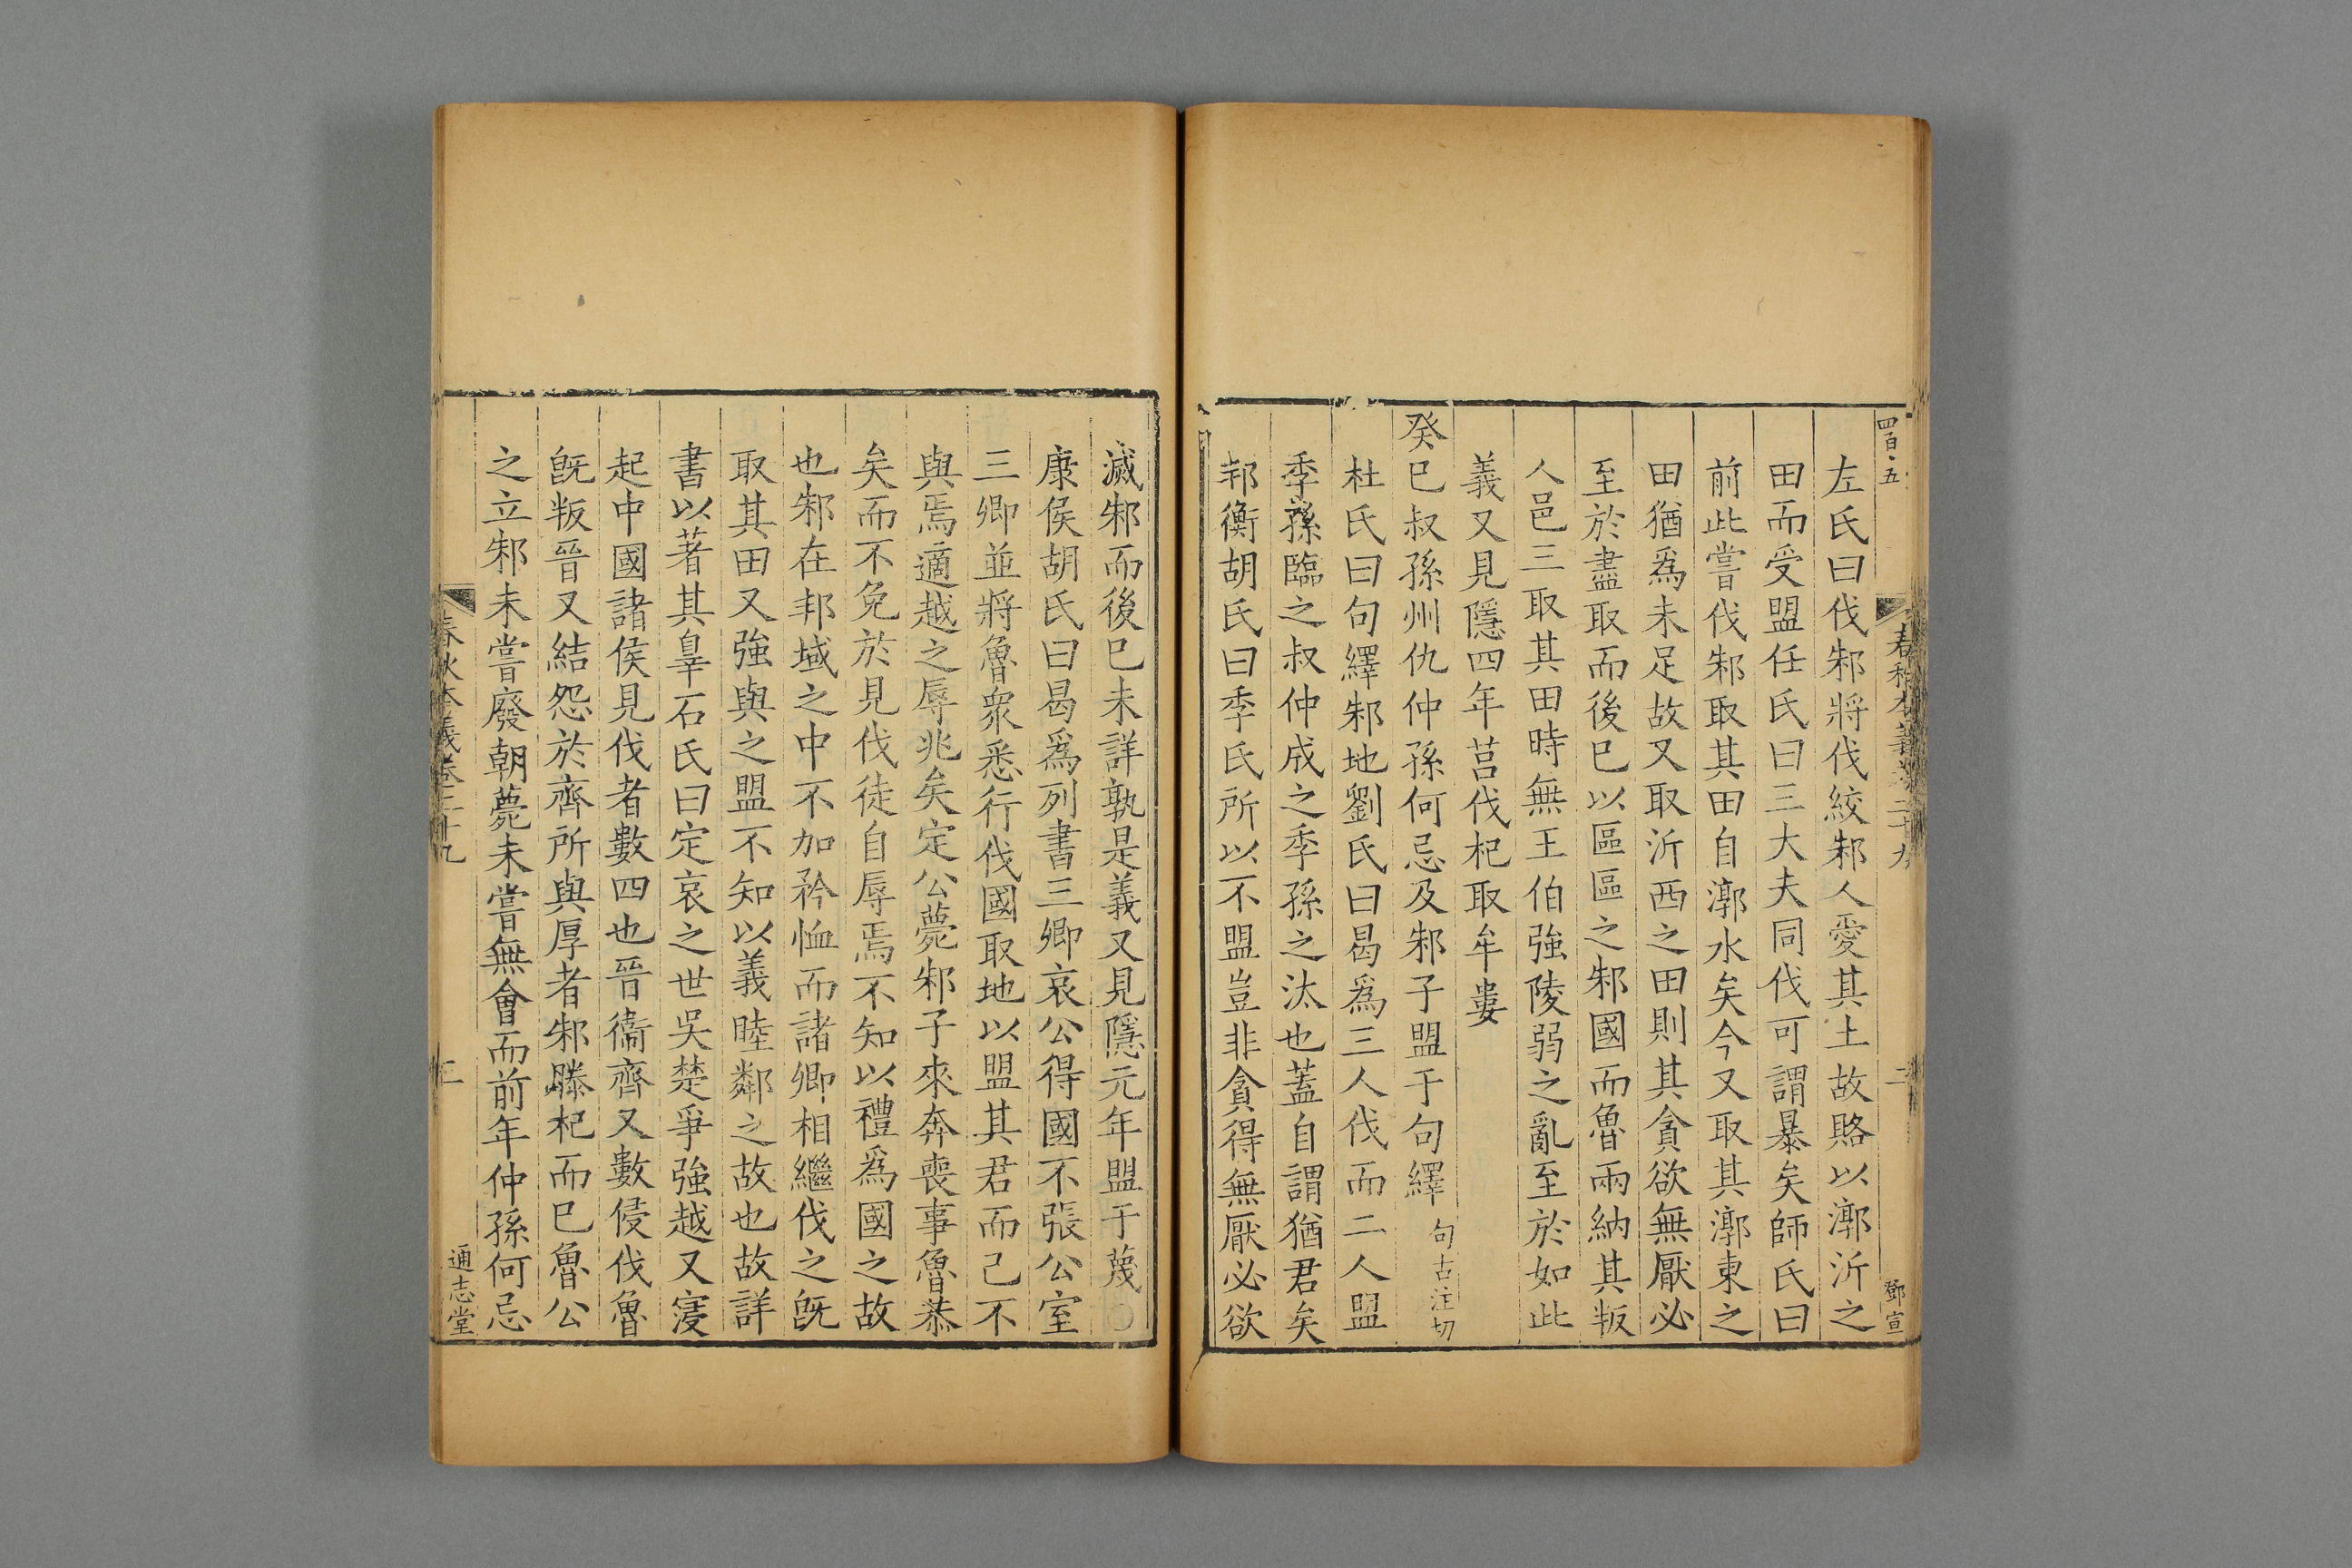 四百·五
春秋本義卷二十九
二
鄧宣
左氏曰伐邾將伐絞邾人愛其土故賂以漷沂之
田而受盟任氏曰三大夫同伐可謂暴矣師氏曰
前此嘗伐邾取其田自漷水矣今又取其漷東之
田猶爲未足故又取沂西之田則其貪欲無厭必
至於盡取而後已以區區之邾國而魯兩納其叛
人邑三取其田時無王伯強陵弱之亂至於如此
義又見隱四年莒伐杞取牟婁
癸巳叔孫州仇仲孫何忌及邾子盟于句繹句古注切
杜氏曰句繹邾地劉氏曰曷爲三人伐而二人盟
季孫臨之叔仲成之季孫之汰也蓋自謂猶君矣
邦衡胡氏曰季氏所以不盟豈非貪得無厭必欲
滅邾而後已未詳孰是義又見隱元年盟于蔑〇
康侯胡氏曰曷爲列書三卿哀公得國不張公室
三卿並將魯衆悉行伐國取地以盟其君而己不
與焉適越之辱兆矣定公薨邾子來奔喪事魯恭
矣而不免於見伐徒自辱焉不知以禮爲國之故
也邾在邦域之中不加矜恤而諸卿相繼伐之旣
取其田又強與之盟不知以義睦鄰之故也故詳
書以著其辠石氏曰定哀之世吳楚爭強越又寖
起中國諸侯見伐者數四也晉衞齊又數侵伐魯
旣叛晉又結怨於齊所與厚者邾滕杞而已魯公
之立邾未嘗廢朝薨未嘗無會而前年仲孫何忌
春秋本義卷二十九
通志堂